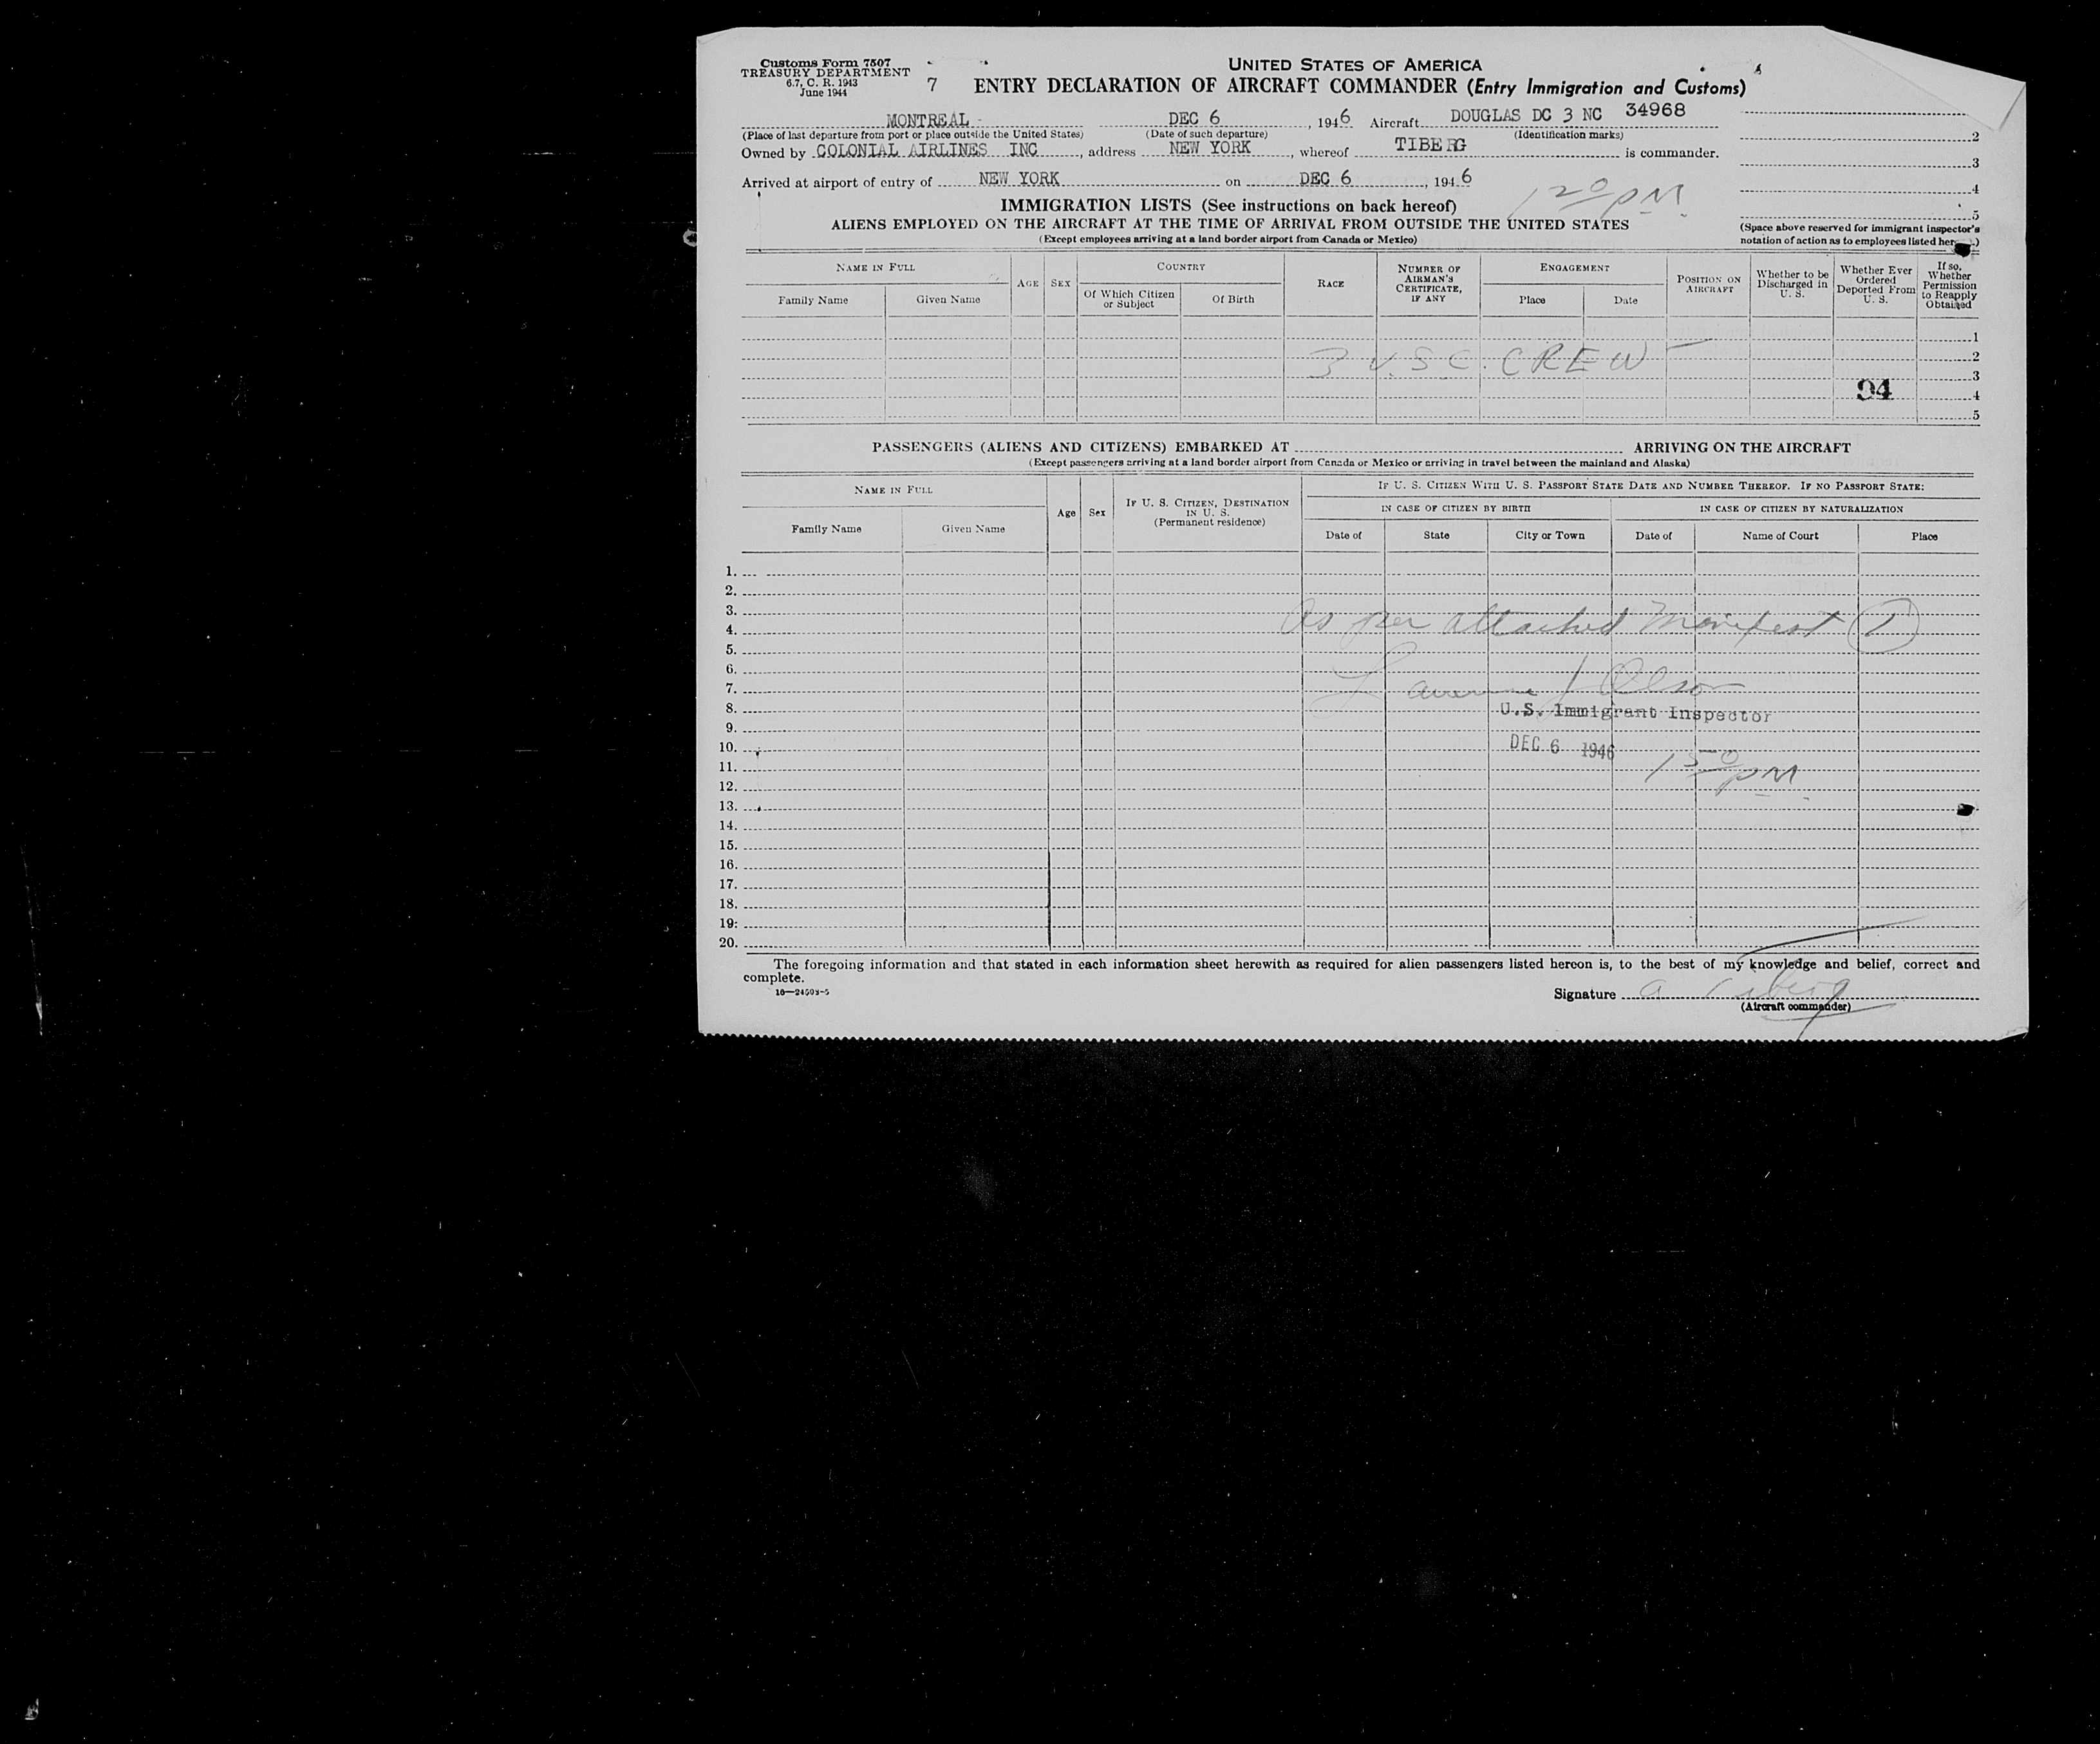 Customs Form 7507
TREASURY DEPARTMENT
6.7, C. R. 1943
June 1944
7
UNITED STATES OF AMERICA
ENTRY DECLARATION OF AIRCRAFT COMMANDER (Entry Immigration and Customs)
MONTREAL DEC 6, 1946 Aircraft DOUGLAS DC 3 NC 34968
(Place of last departure from port or place outside the United States) (Date of such departure) (Identification marks)
Owned by COLONIAL AIRLINES INC, address NEW YORK, whereof TIBERG is commander.
Arrived at airport of entry of NEW YORK on DEC 6, 1946
1 20 PM
2
3
4
5
(Space above reserved for immigrant inspector's
notation of action as to employees listed
IMMIGRATION LISTS (See instructions on back hereof)
ALIENS EMPLOYED ON THE AIRCRAFT AT THE TIME OF ARRIVAL FROM OUTSIDE THE UNITED STATES
(Except employees arriving at a land border airport from Canada or Mexico)
NAME IN FULL
Family Name Given Name
AGE
SEX
COUNTRY
Of Which Citizen or Subject
Of Birth
RACE
NUMBER OF AIRMAN'S CERTIFICATE, IF ANY
ENGAGEMENT
Place Date
POSITION ON AIRCRAFT
Whether to be Discharged in U. S.
Whether Ever Ordered Deported From U. S.
If so, Whether Permission to Reapply Obtained
1
2
3
4
5
3 U.S.C. CREW
94
PASSENGERS (ALIENS AND CITIZENS) EMBARKED AT ARRIVING ON THE AIRCRAFT
(Except passengers arriving at a land border airport from Canada or Mexico or arriving in travel between the mainland and Alaska)
NAME IN FULL
Family Name Given Name
Age
Sex
IF U. S. CITIZEN, DESTINATION IN U. S.
(Permanent residence)
IF U. S. CITIZEN WITH U. S. PASSPORT STATE DATE AND NUMBER THEREOF. IF NO PASSPORT STATE:
IN CASE OF CITIZEN BY BIRTH IN CASE OF CITIZEN BY NATURALIZATION
Date of State City or Town Date of Name of Court Place
1.
2.
3.
4.
5.
6.
7.
8.
9.
10.
11.
12.
13.
14.
15.
16.
17.
18.
19.
20.
As per attached Manifest 1
Olson
U.S. Immigrant Inspector
DEC 6 1946
1 50 PM
The foregoing information and that stated in each information sheet herewith as required for alien passengers listed hereon is, to the best of my knowledge and belief, correct and
complete.
16—24503-5
Signature a Tiberg
(Aircraft commander)